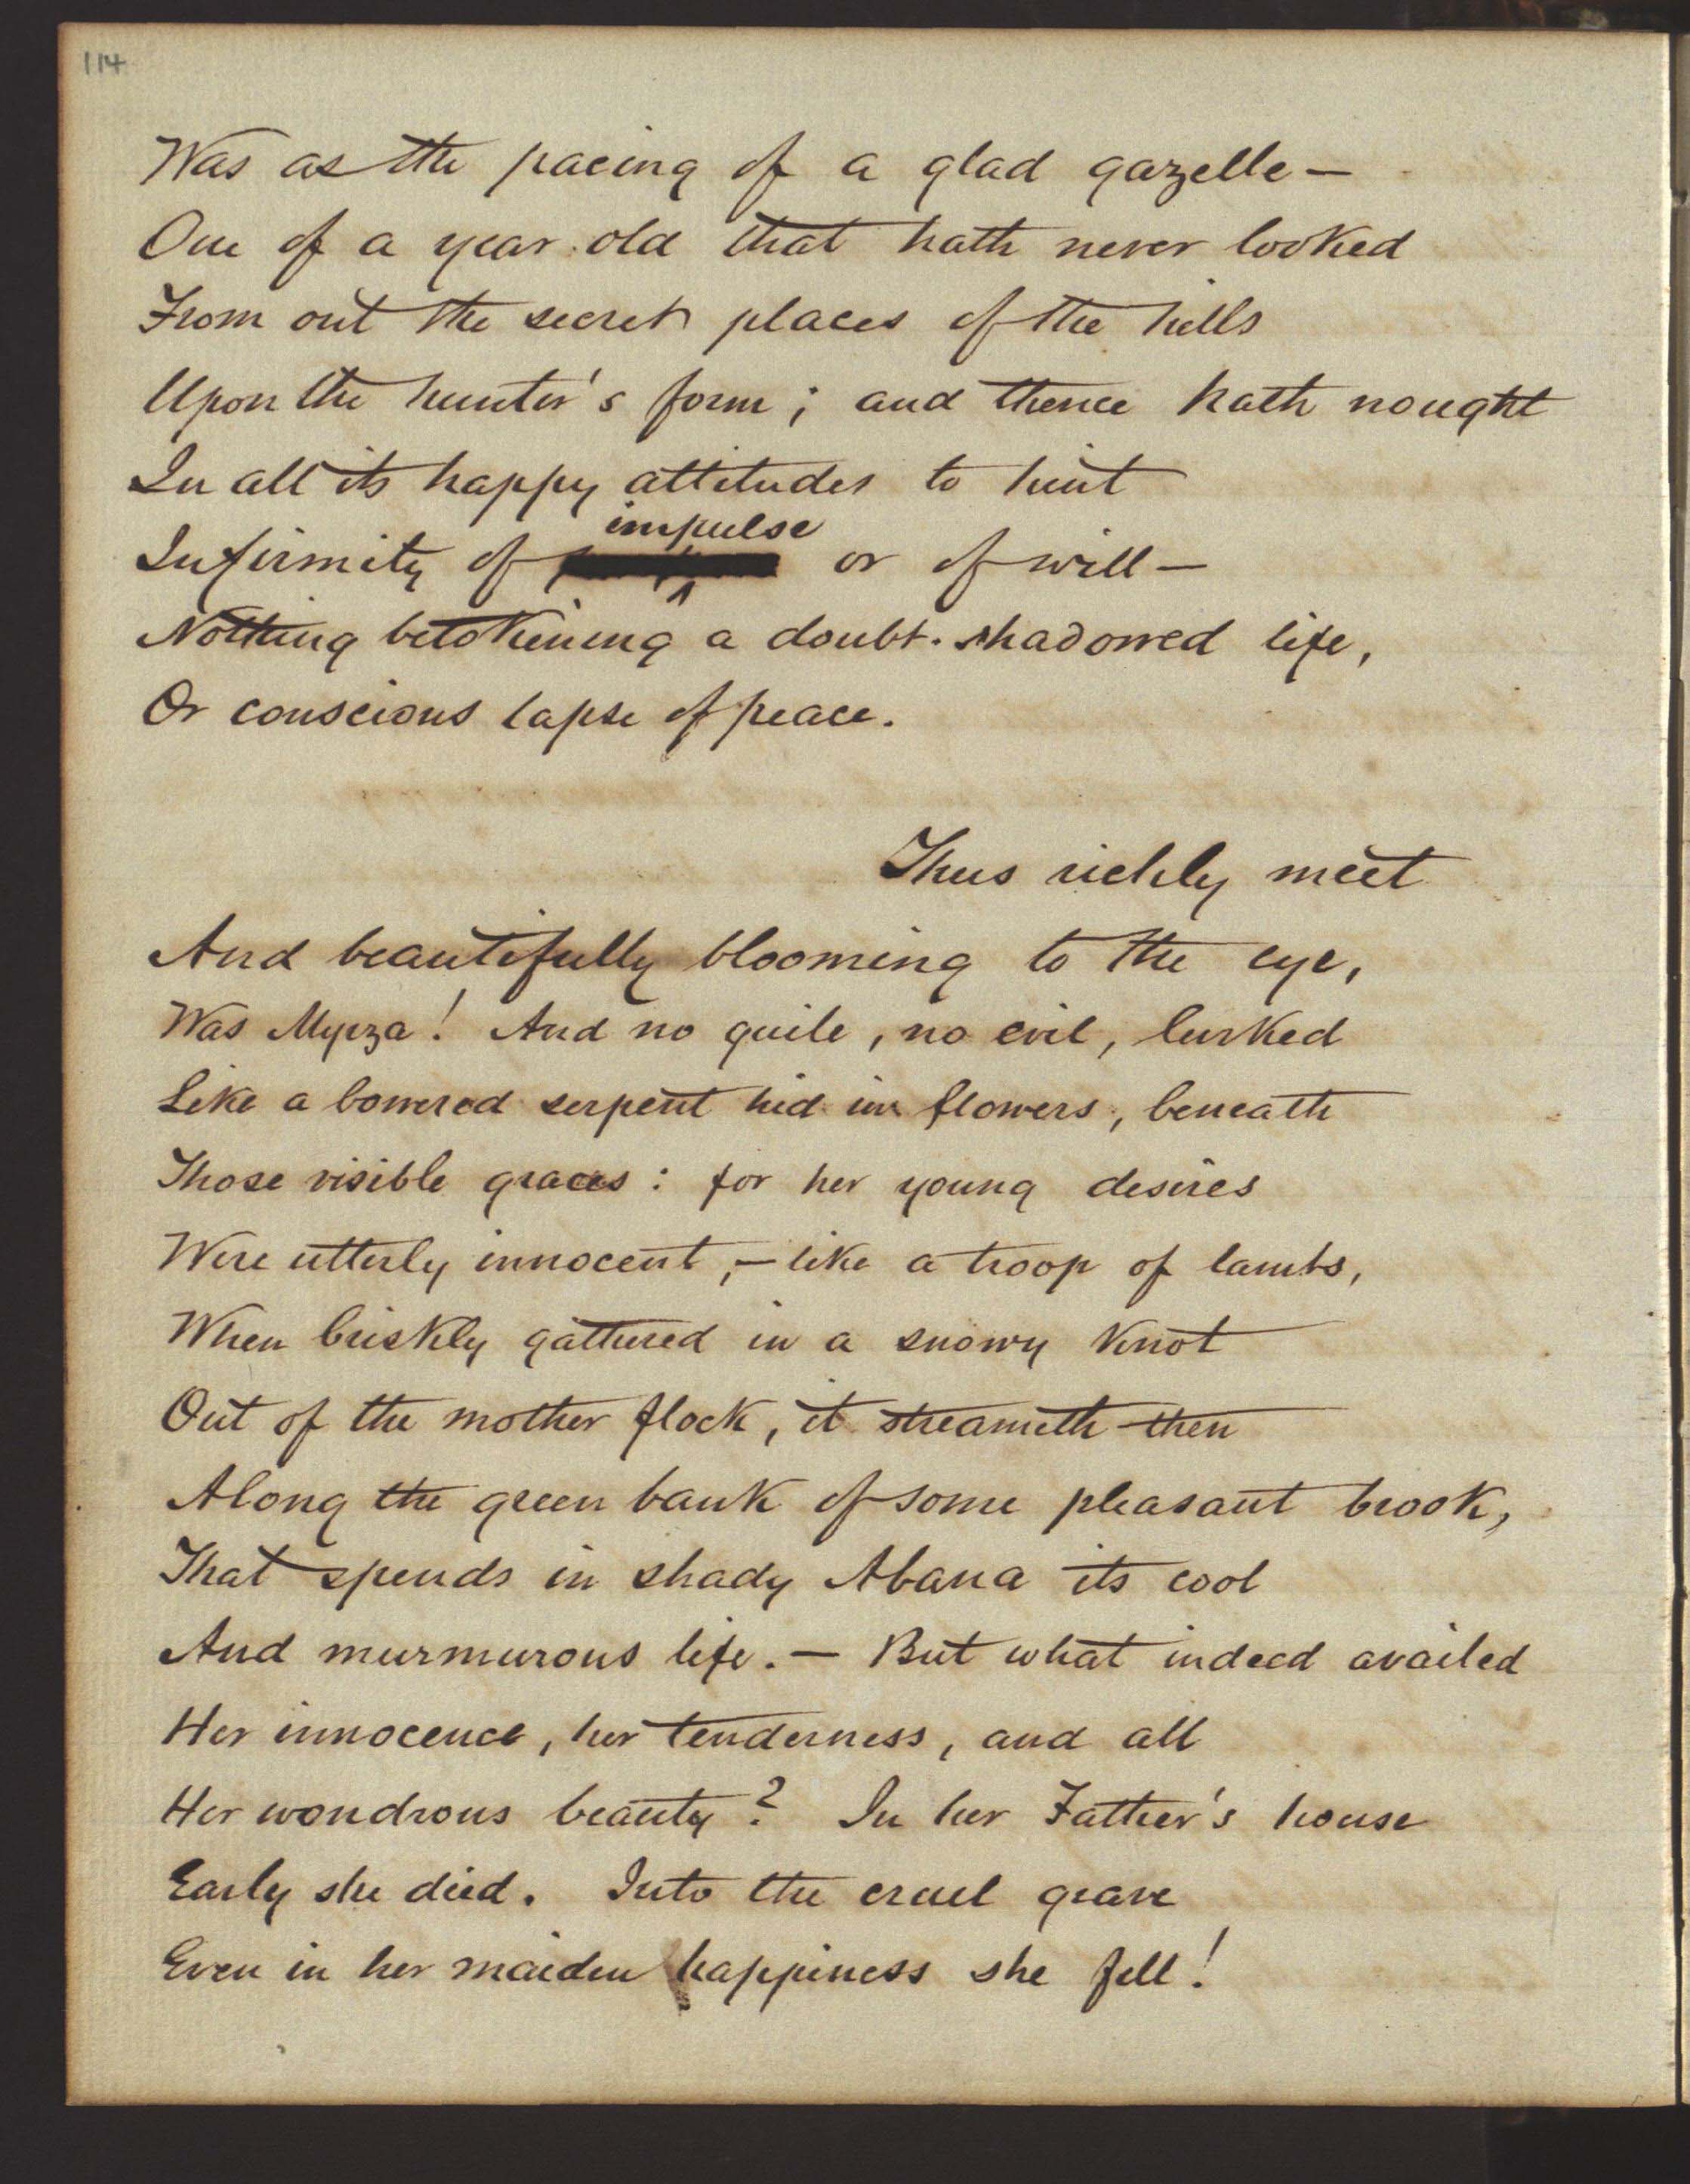 114
Was as the pacing of a glad gazelle —
One of a year old that hath never looked
From out the secret places of the hills
Upon the hunter's form; and thence hath nought
In all its happy attitudes to hint
impulse
Infirmity of or of will —
Nothing betokening a doubt-shadowed life,
Or conscious lapse of peace.
Thus richly meet
And beautifully blooming to the eye,
Was Myrza! And no guile, no evil, lurked
Like a bowered serpent hid in flowers, beneath
Those visible graces: for her young desires
Were utterly innocent, — like a troop of lambs,
When briskly gathered in a snowy knot
Out of the mother flock, it streameth then
Along the green bank of some pleasant brook,
That spends in shady Abana its cool
And murmurous life. — But what indeed availed
Her innocence, her tenderness, and all
Her wondrous beauty? In her Father's house
Early she died. Into the cruel grave
Even in her maiden happiness she fell!